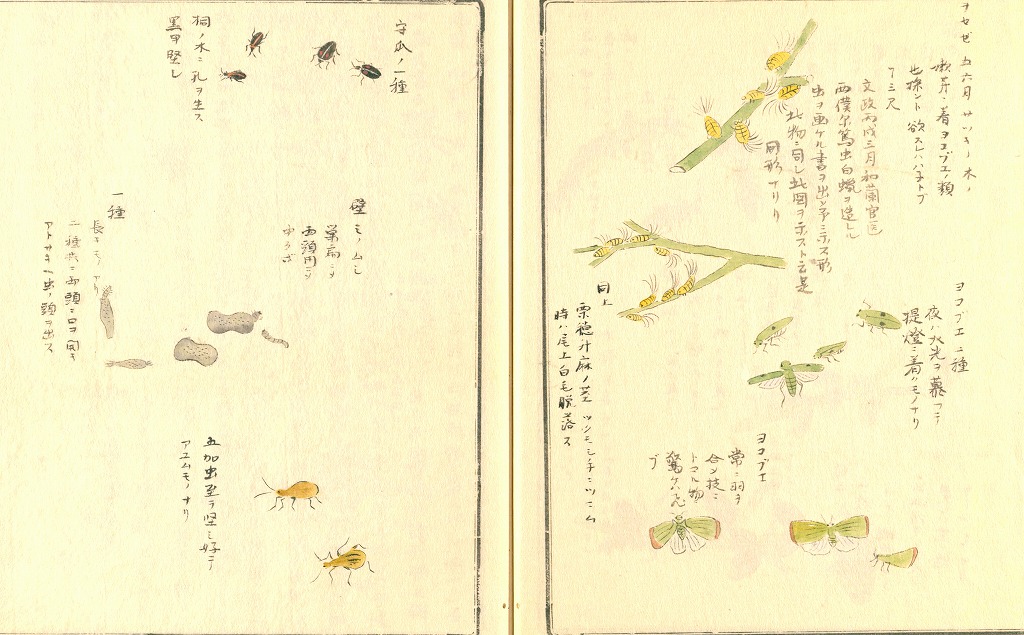 ヲセゼ 五六月 サツキノ木ノ
嫩芽ニ着ヲコブエノ類
也採ント欲スレハハ子トブ
丁三尺
文政丙戌三月和蘭官医
西僕尓篤虫白蝋ヲ造ル
虫ヲ画ケル書ヲ出シ予ニ示ス形
此物ニ同シ此図ヲ示スト云是
同形ナリ
同上
栗穂升麻ノ茎
時ハ尾上白毛脱落ス
ヨコブエ二種
夜ハ火光ヲ慕フテ
提燈ニ着クモノナリ
ヨコブエ
常ニ羽ヲ
合シ技ニ
トマル物
驚ケハ飛
ブ
守瓜ノ一種
桐ノ木ニ孔ヲ生ス
黒甲堅シ
壁モノムシ
巣扁ニシテ
両頭円ニシテ
一種
長キモノアリ
二種共ニ両頭ニ口ヲ開キ
アトサキヘ虫ノ頭ヲ出ス
五加虫至テ堅シ好テ
アユムモノナリ